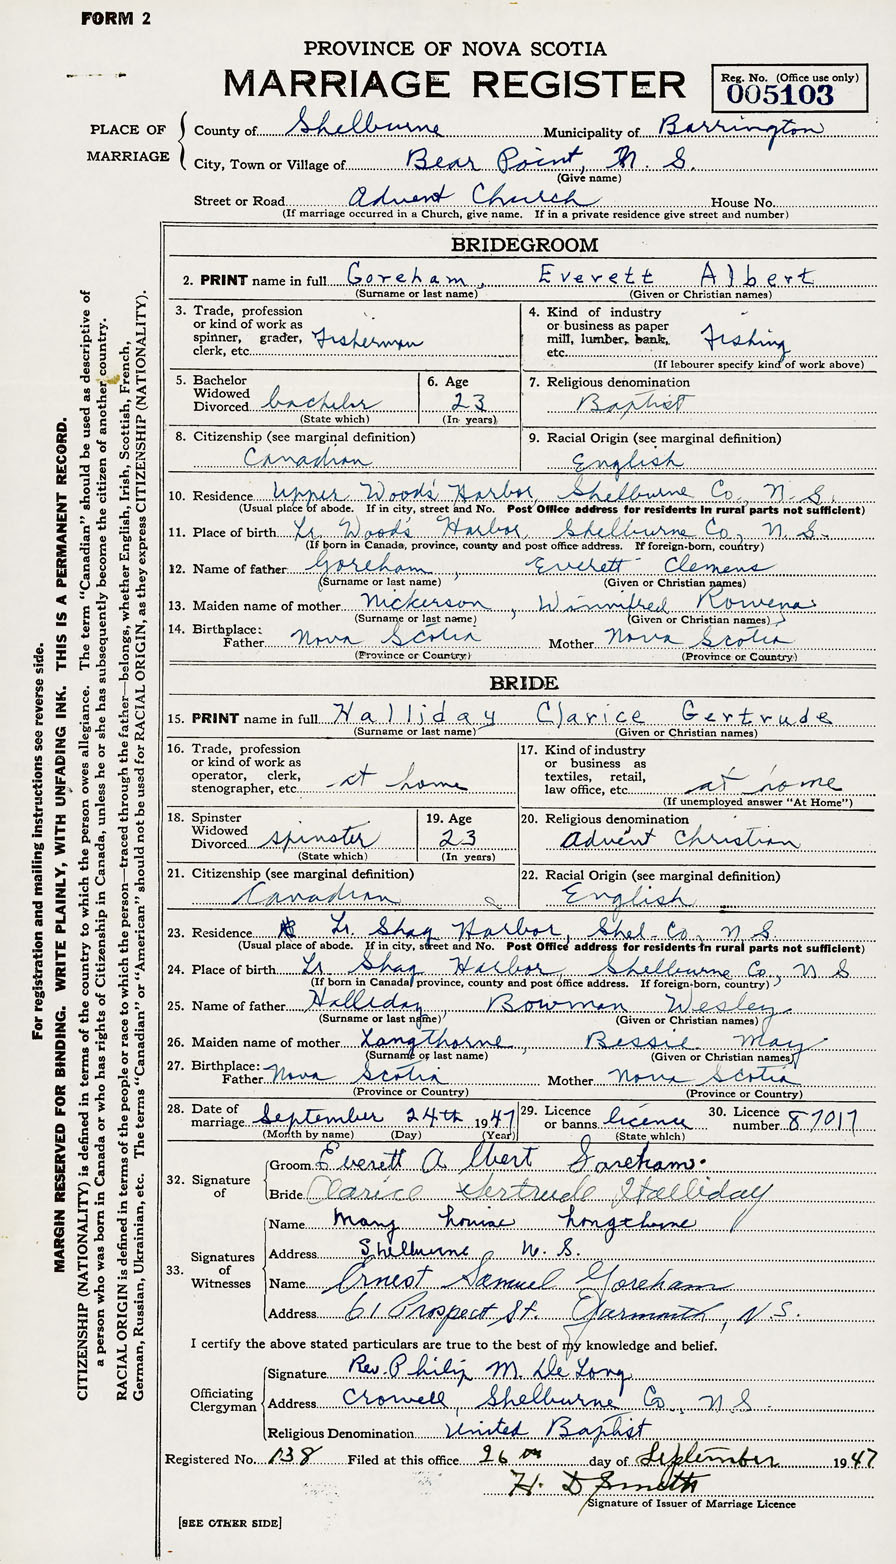 FORM 2
PROVINCE OF NOVA SCOTIA
MARRIAGE REGISTER
Reg. No. (Office use only)
005103
PLACE OF MARRIAGE
County of Shelburne Municipality of Barrington
City, Town or Village of Bear Point, N. S.
(Give name)
Street or Road Advent Church House No.
(If marriage occurred in a Church, give name. If in a private residence give street and number)
BRIDEGROOM
2. PRINT name in full Goreham, Everett Albert
(Surname or last name) (Given or Christian names)
3. Trade, profession or kind of work as spinner, grader, clerk, etc. Fisherman
4. Kind of industry or business as paper mill, lumber, bank, etc. Fishing
(If labourer specify kind of work above)
5. Bachelor Widowed Divorced bachelor
(State which)
6. Age 23
(In years)
7. Religious denomination
Baptist
8. Citizenship (see marginal definition)
Canadian
9. Racial Origin (see marginal definition)
English
10. Residence Upper Wood's Harbor, Shelburne Co., N. S.
(Usual place of abode. If in city, street and No. Post Office address for residents in rural parts not sufficient)
11. Place of birth Lr. Wood's Harbor, Shelburne Co., N. S.
(If born in Canada, province, county and post office address. If foreign-born, country)
12. Name of father Goreham, Everett Clemens
(Surname or last name) (Given or Christian names)
13. Maiden name of mother Nickerson, Winnifred Rowena
(Surname or last name) (Given or Christian names)
14. Birthplace: Father Nova Scotia Mother Nova Scotia
(Province or Country) (Province or Country)
BRIDE
15. PRINT name in full Halliday Clarice Gertrude
(Surname or last name) (Given or Christian names)
16. Trade, profession or kind of work as operator, clerk, stenographer, etc. at home
17. Kind of industry or business as textiles, retail, law office, etc. at home
(If unemployed answer "At Home")
18. Spinster Widowed Divorced spinster
(State which)
19. Age 23
(In years)
20. Religious denomination
Advent Christian
21. Citizenship (see marginal definition)
Canadian
22. Racial Origin (see marginal definition)
English
23. Residence Lr. Shag Harbor, Shel. Co., N. S.
(Usual place of abode. If in city, street and No. Post Office address for residents in rural parts not sufficient)
24. Place of birth Lr Shag Harbor Shelburne Co., N S
(If born in Canada, province, county and post office address. If foreign-born, country)
25. Name of father Halliday, Bowman Wesley
(Surname or last name) (Given or Christian names)
26. Maiden name of mother Langthorne, Bessie May
(Surname or last name) (Given or Christian names)
27. Birthplace: Father Nova Scotia Mother Nova Scotia
(Province or Country) (Province or Country)
28. Date of marriage September 24th 1947
(Month by name) (Day) (Year)
29. Licence or banns licence
(State which)
30. Licence number 87017
32. Signature of
Groom Everett Albert Goreham.
Bride Clarice Gertrude Halliday
33. Signatures of Witnesses
Name Mary Louise Longthorne
Address Shelburne, N. S.
Name Ernest Samuel Goreham
Address 61 Prospect St. Yarmouth, N.S.
I certify the above stated particulars are true to the best of my knowledge and belief.
Officiating Clergyman
Signature Rev. Philip M. De Long
Address Crowell, Shelburne Co., N. S.
Religious Denomination United Baptist
Registered No. 138 Filed at this office 26th day of September 1947
H. D Smith
Signature of Issuer of Marriage Licence
[SEE OTHER SIDE]
For registration and mailing instructions see reverse side.
MARGIN RESERVED FOR BINDING. WRITE PLAINLY, WITH UNFADING INK. THIS IS A PERMANENT RECORD.
CITIZENSHIP (NATIONALITY) is defined in terms of the country to which the person owes allegiance. The term "Canadian" should be used as descriptive of
a person who was born in Canada or who has rights of Citizenship in Canada, unless he or she has subsequently become the citizen of another country.
RACIAL ORIGIN is defined in terms of the people or race to which the person—traced through the father—belongs, whether English, Irish, Scottish, French,
German, Russian, Ukrainian, etc. The terms "Canadian" or "American" should not be used for RACIAL ORIGIN, as they express CITIZENSHIP (NATIONALITY).